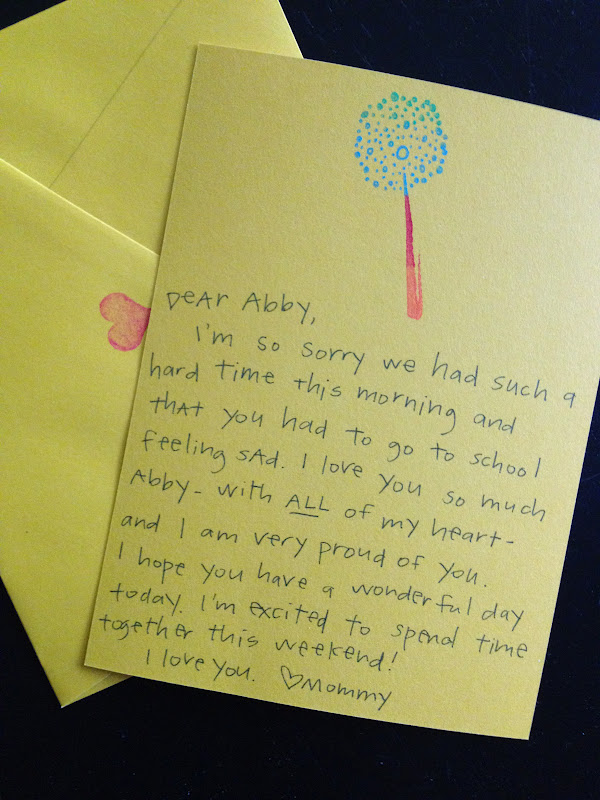 Dear Abby,
I'm so sorry we had such a
hard time this morning and
that you had to go to school
feeling sad. I love you so much
Abby - with ALL of my heart -
and I am very proud of you.
I hope you have a wonderful day
today. I'm excited to spend time
together this weekend!
I love you. ♡Mommy